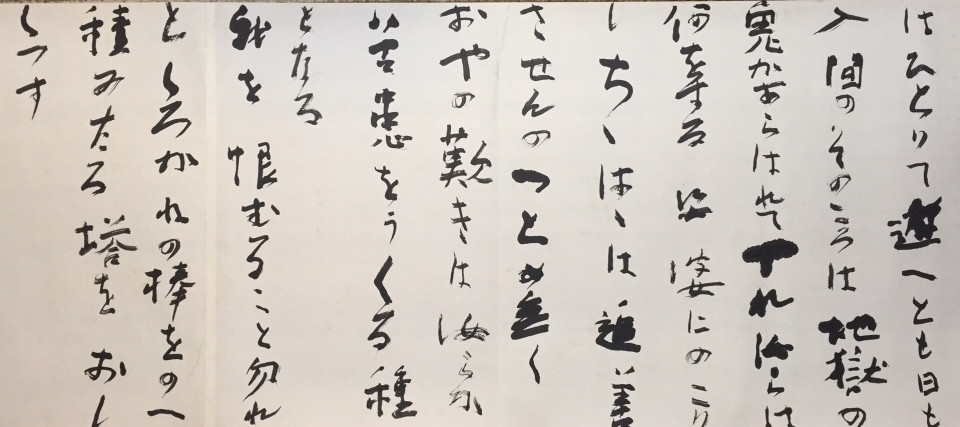 はひとりて遊へとも日も
入間のそのころは地獄の
鬼かあらはれてやれ汝らは
何をする娑婆にのこり
しちゝはゝは追善
させんのつとめ無く
おやの歎きは汝らか
苦患をうくる種
となる
我を恨むること勿れ
とくろかねの棒をのへ
積みたる塔をおし
くつす